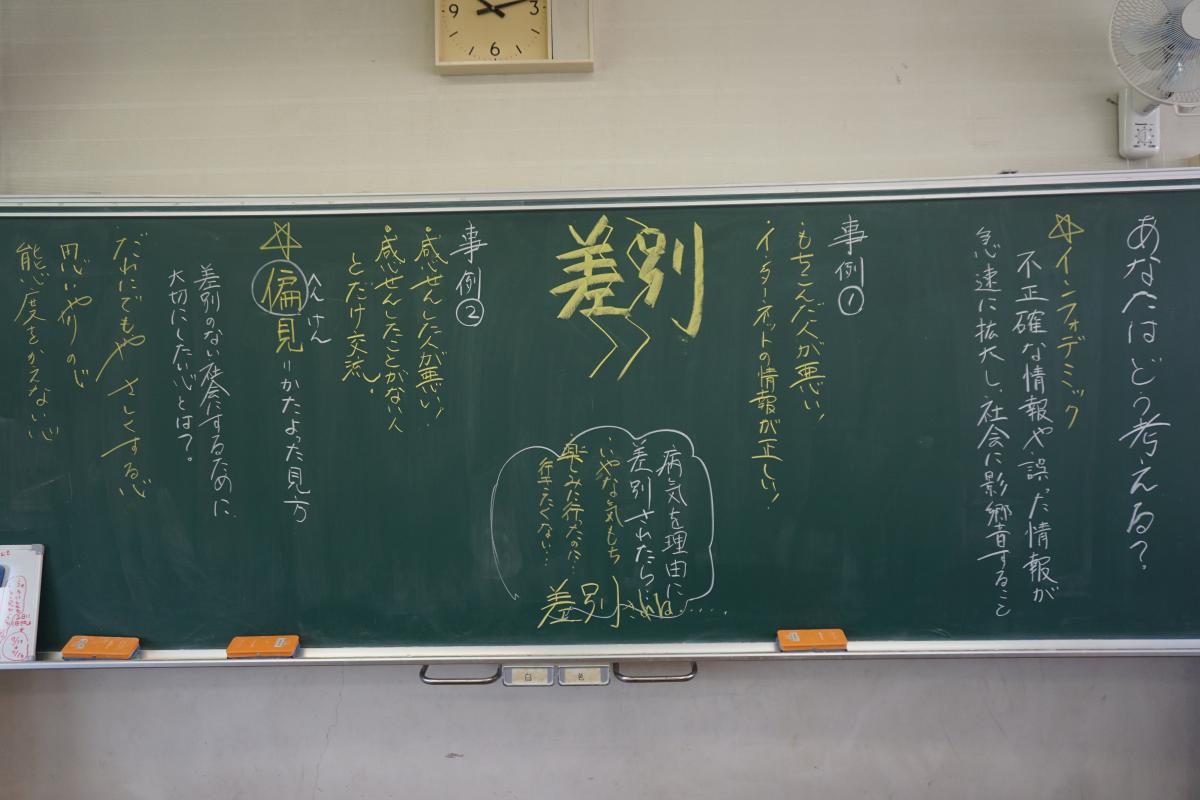 あなたはどう考える?
☆インフォデミック
不正確な情報や誤った情報が
急速に拡大し、社会に影響すること
事例①
・もちこんだ人が悪い!
・インターネットの情報が正しい!
差別
病気を理由に
差別されたら…
いやな気もち
楽しみに行ったのに…
行きたくない…
差別
事例②
・感せんした人が悪い!
・感せんしたことがない人
とだけ交流
☆偏見=かたよった見方
へんけん
差別のない社会にするために
大切にしたい心とは?。
だれにでもやさしくする心
思いやりの心
態度をかえない心
9 3
6
白
色